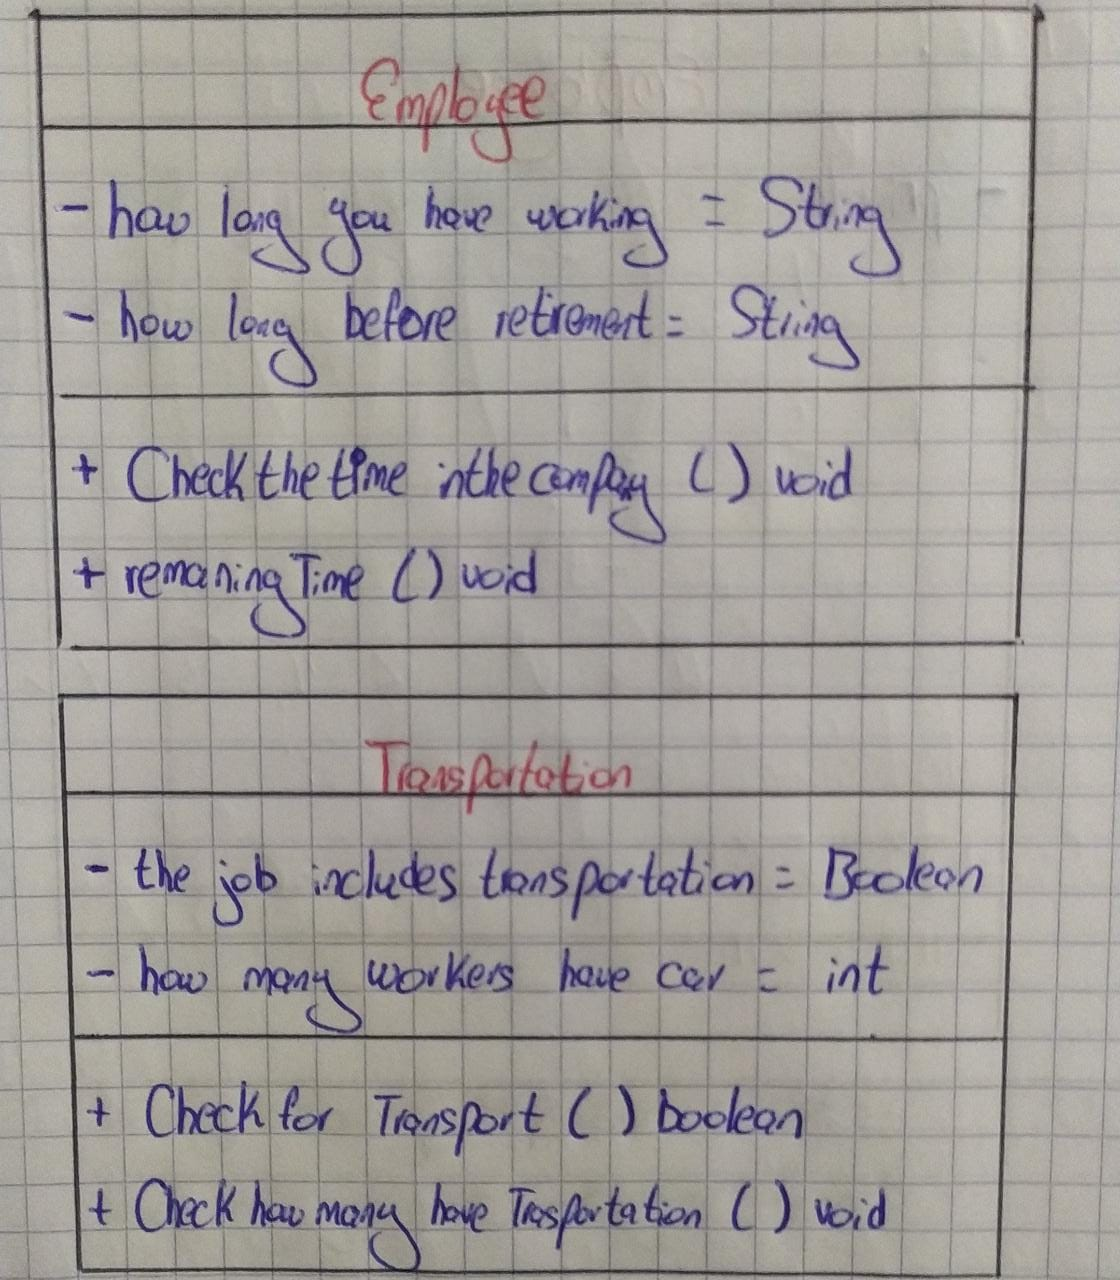 Employee
- how long you have working = String
- how long before retirement = String
+ Check the time inthe compay () void
+ remaningTime () void
Transportation
- the job includes transportation = Boolean
- how many workers have car = int
+ Check for Transport () boolean
+ Check how many have Trasportation () void